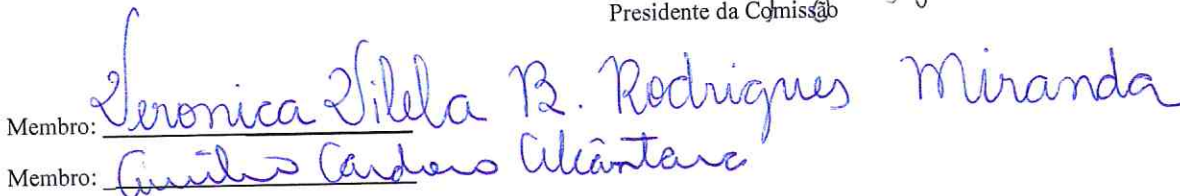 Presidente da Comissão
Membro: Veronica Vilela B. Rodrigues Miranda
Membro: Cardoso Alcântara